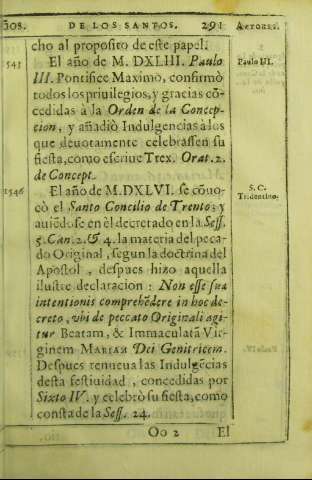 ños. DE LOS SANTOS. 291 Autores.
cho al proposito de este papel.
1543 El año de M. DXLIII. Paulo Paulo III.
III. Pontifice Maximo, confirmò
todos los priuilegios, y gracias cõ-
cedidas à la Orden de la Concep-
cion, y añadiò Indulgencias à los
que deuotamente celebrassen su
fiesta, como escriue Trex. Orat. 2.
de Concept.
1546 El año de M. DXLVI. se cõuo- S. C.
cò el Santo Concilio de Trento; y Tridentino.
auiẽdose en èl decretado en la Sess.
5. Can. 2. & 4. la materia del peca-
do Original, segun la doctrina del
Apostol, despues hizo aquella
ilustre declaracion: Non esse sua
intentionis comprehẽdere in hoc de-
creto, vbi de peccato Originali agi-
tur Beatam, & Immaculatã Vir-
ginem MARIAM Dei Genitricem.
Despues renueua las Indulgẽcias
desta festiuidad, concedidas por
Sixto IV. y celebrò su fiesta, como
consta de la Sess. 24.
Oo 2 El